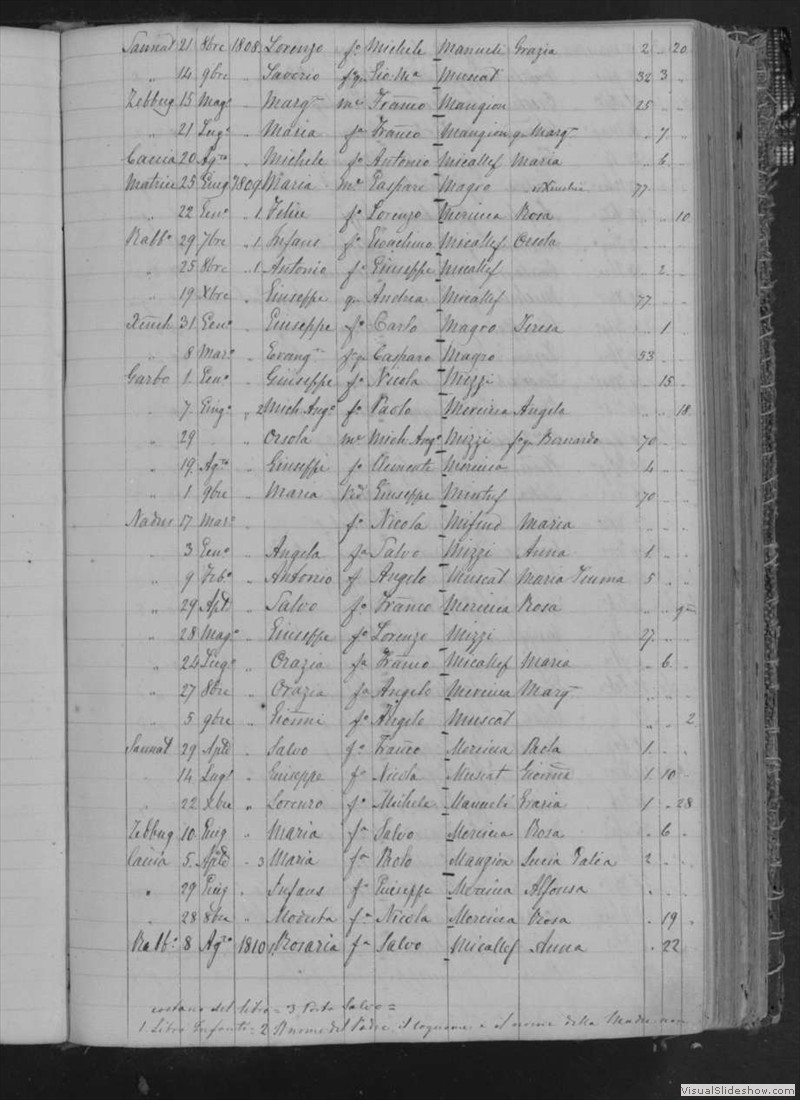 Sannat 21 8bre 1808 Lorenzo fo Michele Manueli Grazia 2 .. 20
" 14 9bre " Saverio fo qm Gio Ma Muscat 32 3 "
Zebbug 15 Mago " Margta me Franco Mangion 25 " "
" 21 Lugo " Maria fa Franco Mangion q Margta " 7 "
Caccia 20 Agto " Michele fo Antonio Micallef Maria " 6 "
Matrice 25 Giug 1809 Maria me Gaspare Magro 77
" 22 Geno " 1 Felice fo Lorenzo Mercieca Rosa " " 10
Rabbo 29 7bre " 1 Infans fo Gioachino Micallef Orsola
" 25 8bre " 1 Antonio fo Giuseppe Micallef " 2 "
" 19 Xbre " Giuseppe qm Andrea Micallef 77
Xeuch 31 Geno " Giuseppe fo Carlo Magro Teresa " 1 "
" 8 Maro " Evangta fa qm Gasparo Magro 53
Garbo 1 Geno " Giuseppe fo Nicola Mizzi " 15 "
" 7 Giugo " 2 Mich Ango fo Paolo Mercieca Angela " " 18
" 29 " Orsola me Mich. Ango Mizzi fa qm Bernardo 70
" 19 Agto " Giuseppe fo Clemente Mercieca 4
" 1 9bre " Maria Vid Giuseppe 70
Nadur 17 Maro " fo Nicola Mifsud Maria
" 3 Geno " Angela fa Salvo Mizzi Anna 1 " "
" 9 Febo " Antonio f Angelo Muscat Maria 5 " "
" 29 Aple " Salvo fo Franco Mercieca Rosa
" 28 Mago " Giuseppe fo Lorenzo Mizzi 27 " "
" 24 Lugo " Orazia fa Franco Micallef Maria " 6 "
" 27 8bre " Orazia fa Angelo Mercieca Margta
" 5 9bre " Gionni fo Angelo Muscat " " 2
Sannat 29 Aple " Salvo fo Franco Mercieca Paola 1 " "
14 Lugo " Giuseppe fo Nicola Muscat Gionna 1 10 "
" 22 Xbre " Lorenzo fo Michele Manueli Grazia 1 " 28
Zebbug 10 Giug " Maria fa Salvo Mercieca Rosa " 6 "
Caccia 5 Aple " 3 Maria fa Paolo Mangion Lucia 2 " "
" 29 Giug " Infans fo Giuseppe Mercieca Alfonsa
" 28 8bre " Modesta fa Nicola Mercieca Rosa " 19 "
Rabbo 8 Agto 1810 Rosaria fa Salvo Micallef Anna " 22
costano del libro = 3 Porto Salvo =
1. Libro Infanti = 2 Il nome del Padre, il cognome e il nome della Madre non
VisualSlideshow.com